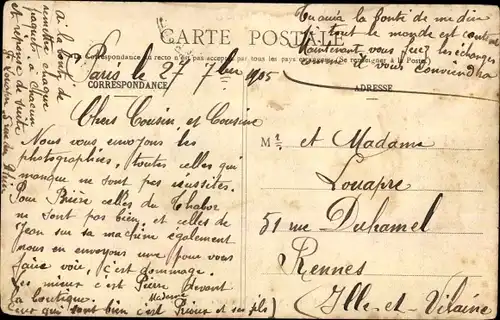 CARTE POSTALE
La Correspondance au recto n'est pas acceptée par tous les pays étrangers (Se renseigner à la Poste)
CORRESPONDANCE
ADRESSE
Paris le 27 7bre 1905
Chers Cousin et Cousine
Nous vous envoyons les
photographies, toutes celles qui
manque ne sont pas réussites.
Pour celles du Thabor
ne sont pas bien, et celles de
Jean sur sa machine également
nous en envoyons une pour vous
faire voir, c'est dommage.
Les mieux c'est Pierre devant
la boutique. Madame
Ceux qui sont bien c'est et ses fils)
Tu aura la bonté de me dire
si tout le monde est content
Maintenant vous pouvez les échanger
comme il vous conviendra
ai la bonté de
remettre chaque
paquets à chacun
et réponse de suite
M. et Madame
Louapre
51 rue Duhamel
Rennes
Ille-et-Vilaine